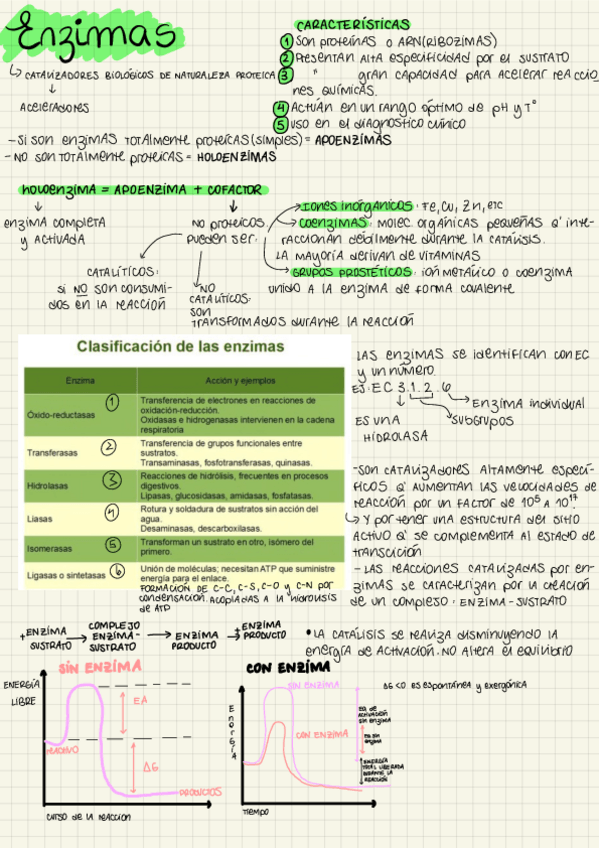 Enzimas
↳ CATALIZADORES BIOLÓGICOS DE NATURALEZA PROTEICA
↓
ACELERADORES
CARACTERÍSTICAS
1 SON PROTEÍNAS O ARN(RIBOZIMAS)
2 PRESENTAN ALTA ESPECIFICIDAD POR EL SUSTRATO
3 " GRAN CAPACIDAD PARA ACELERAR REACCIO
NES QUÍMICAS.
4 ACTÚAN EN UN RANGO ÓPTIMO DE PH Y Tº
5 USO EN EL DIAGNOSTICO CLÍNICO
- SI SON ENZIMAS TOTALMENTE PROTEICAS (SIMPLES) = APOENZIMAS
- NO SON TOTALMENTE PROTEICAS = HOLOENZIMAS
HOLOENZIMA = APOENZIMA + COFACTOR
ENZIMA COMPLETA
Y ACTIVADA
NO PROTEICOS
PUEDEN SER:
CATALÍTICOS:
SI NO SON CONSUMI-
DOS EN LA REACCIÓN
NO
CATALÍTICOS:
SON
TRANSFORMADOS DURANTE LA REACCIÓN
IONES INORGÁNICOS: Fe, Cu, Zn, etc
COENZIMAS: MOLEC. ORGÁNICAS PEQUEÑAS Q' INTE-
RACCIONAN DÉBILMENTE DURANTE LA CATÁLISIS.
LA MAYORÍA DERIVAN DE VITAMINAS
GRUPOS PROSTÉTICOS: IÓN METÁLICO O COENZIMA
UNIDO A LA ENZIMA DE FORMA COVALENTE
Clasificación de las enzimas
Enzima Acción y ejemplos
Óxido-reductasas 1 Transferencia de electrones en reacciones de
oxidación-reducción.
Oxidasas e hidrogenasas intervienen en la cadena
respiratoria
Transferasas 2 Transferencia de grupos funcionales entre
sustratos.
Transaminasas, fosfotransferasas, quinasas.
Hidrolasas 3 Reacciones de hidrólisis, frecuentes en procesos
digestivos.
Lipasas, glucosidasas, amidasas, fosfatasas.
Liasas 4 Rotura y soldadura de sustratos sin acción del
agua.
Desaminasas, descarboxilasas.
Isomerasas 5 Transforman un sustrato en otro, isómero del
primero.
Ligasas o sintetasas 6 Unión de moléculas; necesitan ATP que suministre
energía para el enlace.
FORMACIÓN DE C-C, C-S, C-O Y C-N POR
CONDENSACIÓN. ACOPLADAS A LA HIDRÓLISIS
DE ATP
LAS ENZIMAS SE IDENTIFICAN CON EC
Y UN NÚMERO.
EJ: EC 3.1.2.6
ENZIMA INDIVIDUAL
SUBGRUPOS
ES UNA
HIDROLASA
- SON CATALIZADORES ALTAMENTE ESPECÍ-
FICOS Q' AUMENTAN LAS VELOCIDADES DE
REACCIÓN POR UN FACTOR DE 10⁵ A 10¹⁷.
↳ Y POR TENER UNA ESTRUCTURA DEL SITIO
ACTIVO Q' SE COMPLEMENTA AL ESTADO DE
TRANSCICIÓN
- LAS REACCIONES CATALIZADAS POR EN-
ZIMAS SE CARACTERIZAN POR LA CREACIÓN
DE UN COMPLEJO: ENZIMA-SUSTRATO
+ENZIMA SUSTRATO → COMPLEJO ENZIMA-SUSTRATO → ENZIMA PRODUCTO → +ENZIMA PRODUCTO
• LA CATÁLISIS SE REALIZA DISMINUYENDO LA
ENERGÍA DE ACTIVACIÓN. NO ALTERA EL EQUILIBRIO
SIN ENZIMA
ENERGÍA
LIBRE
EA
REACTIVO
ΔG
PRODUCTOS
CURSO DE LA REACCIÓN
CON ENZIMA
Energía
SIN ENZIMA
CON ENZIMA
EA DE
ACTIVACIÓN
SIN ENZIMA
EA SIN
ENZIMA
ENERGÍA
TOTAL LIBERADA
DURANTE LA
REACCIÓN
TIEMPO
ΔG <0 ES ESPONTÁNEA Y EXERGÓNICA